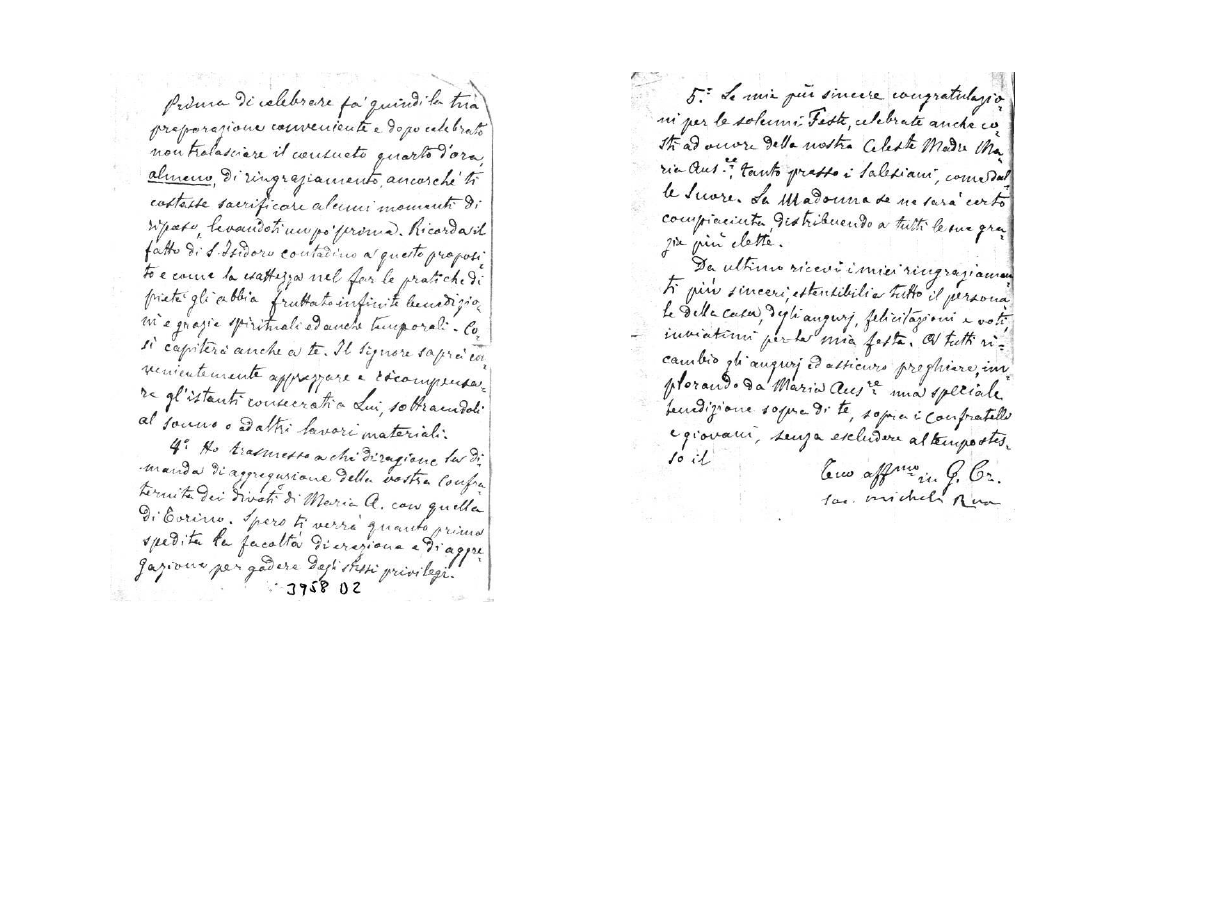 Prima di celebrare fa' quindi la tua
preparazione conveniente e dopo celebrato
non tralasciare il consueto quarto d'ora,
almeno, di ringraziamento, ancorché ti
costasse sacrificare alcuni momenti di
riposo, levandoti un po' prima. Ricorda il
fatto di S. Isidoro contadino a questo proposi-
to e come la esattezza nel far le pratiche di
pietà gli abbia fruttato infinite benedizio-
ni e grazie spirituali ed anche temporali. Co-
sì capiterà anche a te. Il Signore saprà con
venientemente apprezzare e ricompensa-
re gl'istanti consecrati a Lui, sottraendoli
al sonno o ad altri lavori materiali.
4° Ho trasmesso a chi di ragione la di-
manda di aggregazione della vostra Confra-
ternita dei divoti di Maria A. con quella
di Torino. Spero ti verrà quanto prima
spedita la facoltà di erezione e di aggre-
gazione per godere degli stessi privilegi.
3958 D2
5.° Le mie più sincere congratulazio-
ni per le solenni Feste, celebrate anche co-
stì ad onore della nostra Celeste Madre Ma-
ria Aus.ce, tanto presso i Salesiani, come dal-
le Suore. La Madonna se ne sarà certo
compiaciuta, distribuendo a tutti le sue gra-
zie più elette.
Da ultimo ricevi i miei ringraziamen
ti più sinceri, estensibili a tutto il persona-
le della casa, degli augurj, felicitazioni e voti,
inviatimi per la mia festa. A tutti ri-
cambio gli augurj ed assicuro preghiere, im-
plorando da Maria Aus.ce una speciale
benedizione sopra di te, sopra i confratelli
e giovani, senza escludere al tempo stes-
so il
Tuo aff.mo in G. Cr.
Sac. Michele Rua